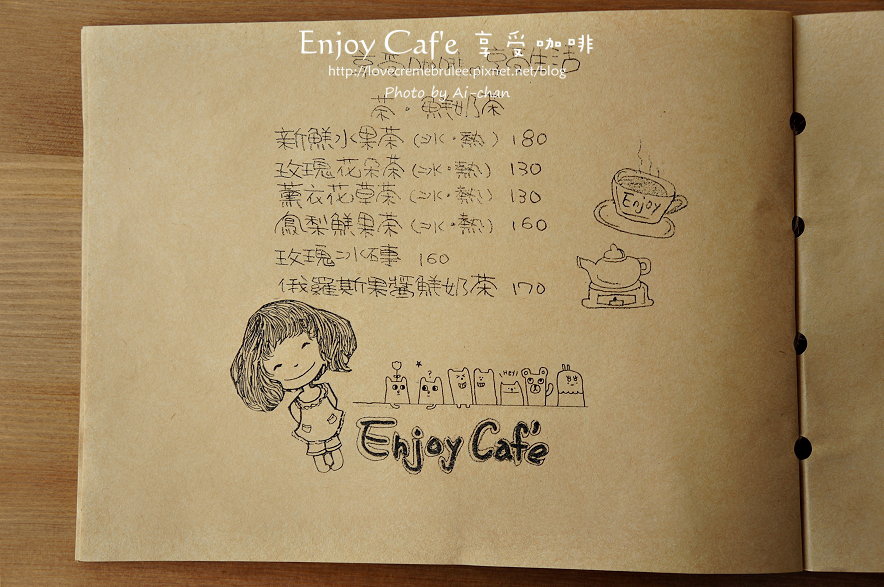 Enjoy Caf'e 享受咖啡
享受 生活
http://lovecremebrulee.pixnet.net/blog
Photo by Ai-chan
茶。鮮奶茶
新鮮水果茶(冰・熱) 180
玫瑰花朵茶(冰・熱) 130
薰衣花草茶(冰・熱) 130
鳳梨鮮果茶(冰・熱) 160
玫瑰冰磚 160
俄羅斯果醬鮮奶茶 170
Enjoy
?
HEY!
Enjoy Caf'e